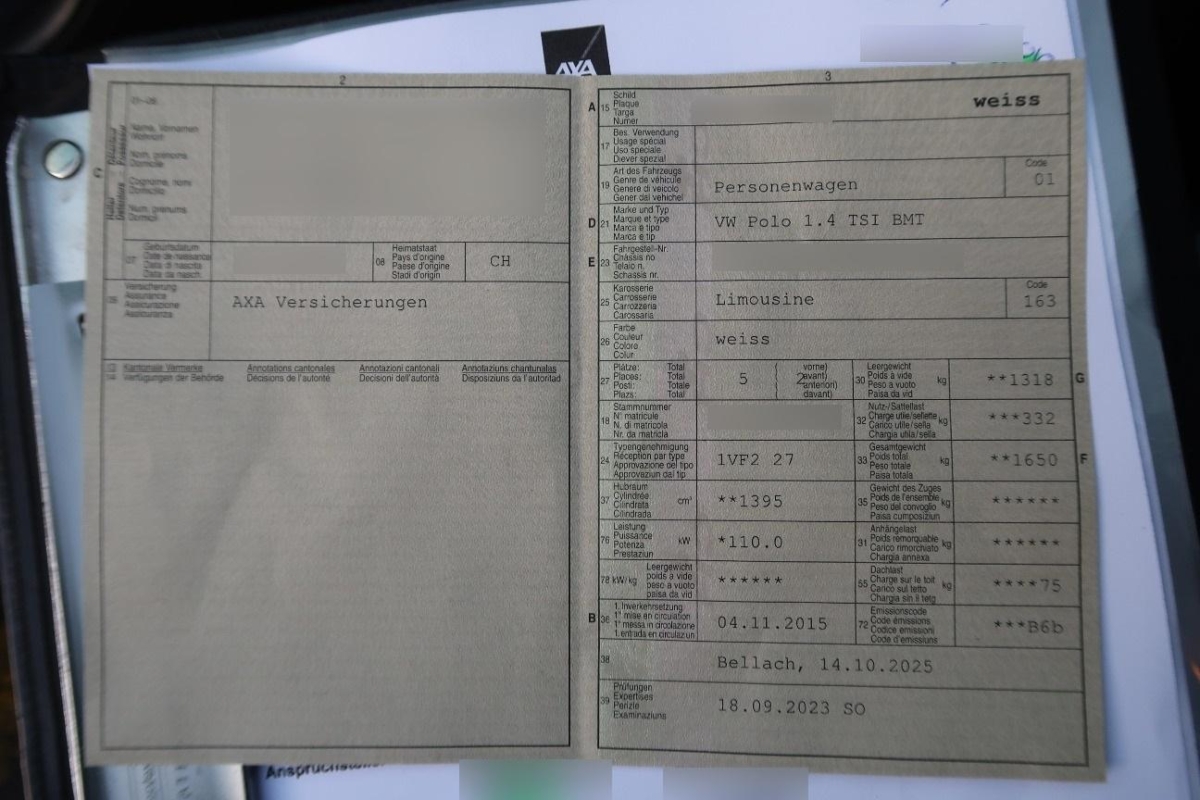 AXA
2
3
C
01-06
Name, Vornamen
Wohnort
Nom, prénoms
Domicile
Cognome, nomi
Domicilio
Num, prenums
Domicil
07
Geburtsdatum
Date de naissance
Data di nascita
Data da nasch.
08
Heimatstaat
Pays d'origine
Paese d'origine
Stadi d'origin
CH
09
Versicherung
Assurance
Assicurazione
Assicuranza
AXA Versicherungen
13
14
Kantonale Vermerke
Verfügungen der Behörde
Annotations cantonales
Décisions de l'autorité
Annotazioni cantonali
Decisioni dell'autorità
Annotaziuns chantunalas
Disposiziuns da l'autoritad
A
15
Schild
Plaque
Targa
Numer
weiss
17
Bes. Verwendung
Usage spécial
Uso speciale
Diever spezial
19
Art des Fahrzeugs
Genre de véhicule
Genere di veicolo
Gener dal vehichel
Personenwagen
Code
01
D
21
Marke und Typ
Marque et type
Marca e tipo
Marca e tip
VW Polo 1.4 TSI BMT
E
23
Fahrgestell-Nr.
Châssis no
Telaio n.
Schassis nr.
25
Karosserie
Carrosserie
Carrozzeria
Carossaria
Limousine
Code
163
26
Farbe
Couleur
Colore
Colur
weiss
27
Plätze: Total
Places: Total
Posti: Totale
Plazs: Total
5
( vorne)
2 avant)
anteriori)
( davant)
30
Leergewicht
Poids à vide
Peso a vuoto
Paisa da vid
kg
**1318
G
18
Stammnummer
N° matricule
N. di matricola
Nr. da matricla
32
Nutz-/Sattellast
Charge utile/sellette
Carico utile/sella
Chargia utila/sella
kg
***332
24
Typengenehmigung
Réception par type
Approvazione del tipo
Approvaziun dal tip
1VF2 27
33
Gesamtgewicht
Poids total
Peso totale
Paisa totala
kg
**1650
F
37
Hubraum
Cylindrée
Cilindrata
Cilindrada
cm³
**1395
35
Gewicht des Zuges
Poids de l'ensemble
Peso del convoglio
Paisa cumposiziun
kg
******
76
Leistung
Puissance
Potenza
Prestaziun
kW
*110.0
31
Anhängelast
Poids remorquable
Carico rimorchiato
Chargia annexa
kg
******
78 kW/kg
Leergewicht
poids à vide
peso a vuoto
paisa da vid
******
55
Dachlast
Charge sur le toit
Carico sul tetto
Chargia sin il tetg
kg
****75
B
36
1. Inverkehrsetzung
1re mise en circulation
1a messa in circolazione
1. entrada en circulaziun
04.11.2015
72
Emissionscode
Code émissions
Codice emissioni
Code d'emissiuns
***B6b
38
Bellach, 14.10.2025
39
Prüfungen
Expertises
Perizie
Examinaziuns
18.09.2023 SO